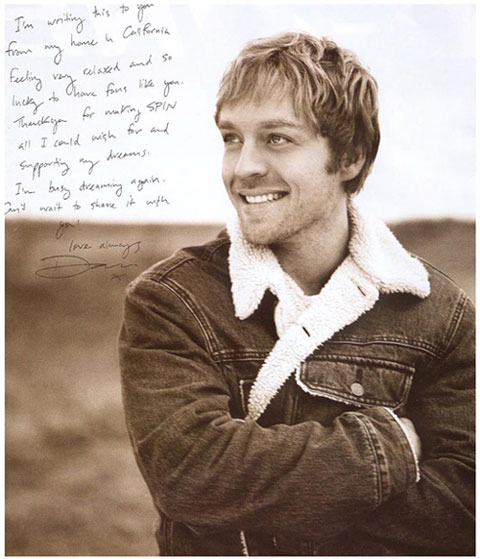 I'm writing this to you
from my home in California
Feeling very relaxed and so
lucky to have fans like you.
Thankyou for making SPIN
all I could wish for and
supporting my dreams.
I'm busy dreaming again.
Can't wait to share it with
you!
love always